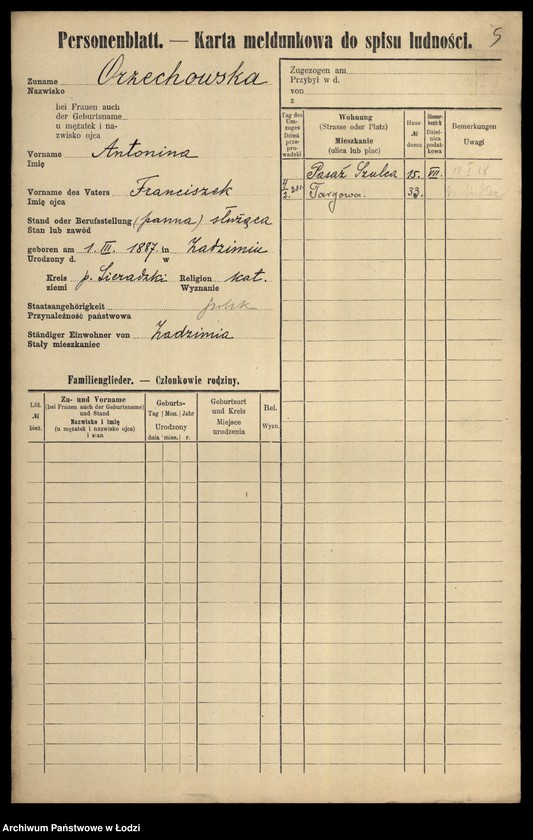 Personenblatt. — Karta meldunkowa do spisu ludności. 5
Zuname Orzechowska
Nazwisko
bei Frauen auch
der Geburtsname
u mężatek i na-
zwisko ojca
Vorname Antonina
Imię
Vorname des Vaters Franciszek
Imię ojca
Stand oder Berufsstellung (panna) służąca
Stan lub zawód
geboren am 1. III. 1887 in Zadzimiu
Urodzony d. w
Kreis p. Sieradzki Religion kat.
ziemi Wyznanie
Staatsangehörigkeit polsk
Przynależność państwowa
Ständiger Einwohner von Zadzimia
Stały mieszkaniec
Familienglieder. — Członkowie rodziny.
Lfd. № bież.
Zu- und Vorname
(bei Frauen auch der Geburtsname)
und Stand
Nazwisko i imię
(u mężatek i nazwisko ojca)
i stan
Geburts-
Tag Mon. Jahr
Urodzony
dnia mies. r.
Geburtsort
und Kreis
Miejsce
urodzenia
Rel.
Wyzn.
Zugezogen am
Przybył w d.
von
z
Tag des
Um-
zuges
Dzień
prze-
prowadzki
Wohnung
(Strasse oder Platz)
Mieszkanie
(ulica lub plac)
Haus
№
domu
Steuer-
bezirk
Dziel-
nica
podat-
kowa
Bemerkungen
Uwagi
Pasaż Szulca 15. VII.
Targowa. 33.
Archiwum Państwowe w Łodzi